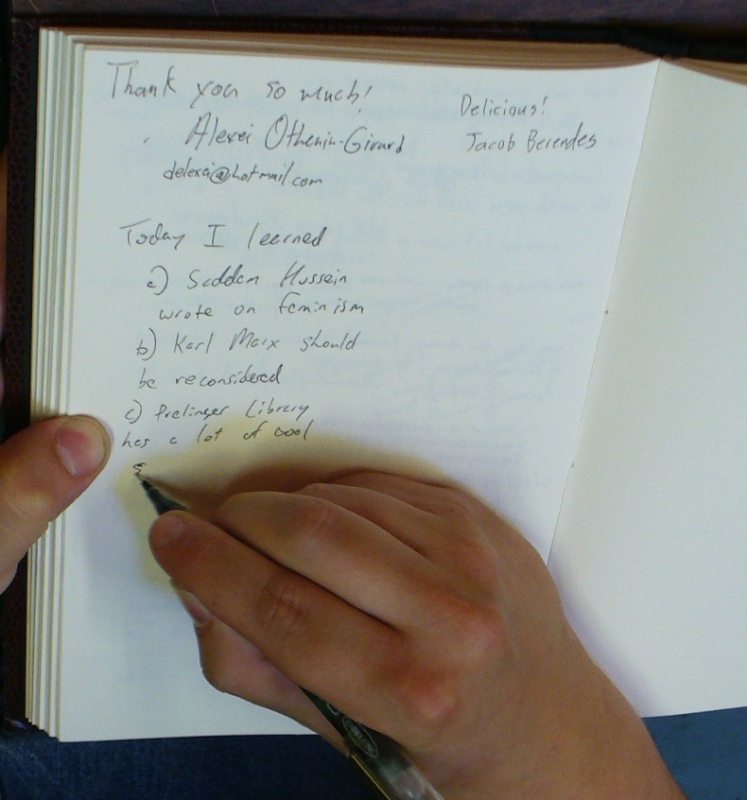 Thank you so much!
Alexei Othenin-Girard
delexi@hotmail.com
Delicious!
Jacob Berendes
Today I learned
a) Saddam Hussein
wrote on feminism
b) Karl Marx should
be reconsidered
c) Prelinger Library
has a lot of cool
s